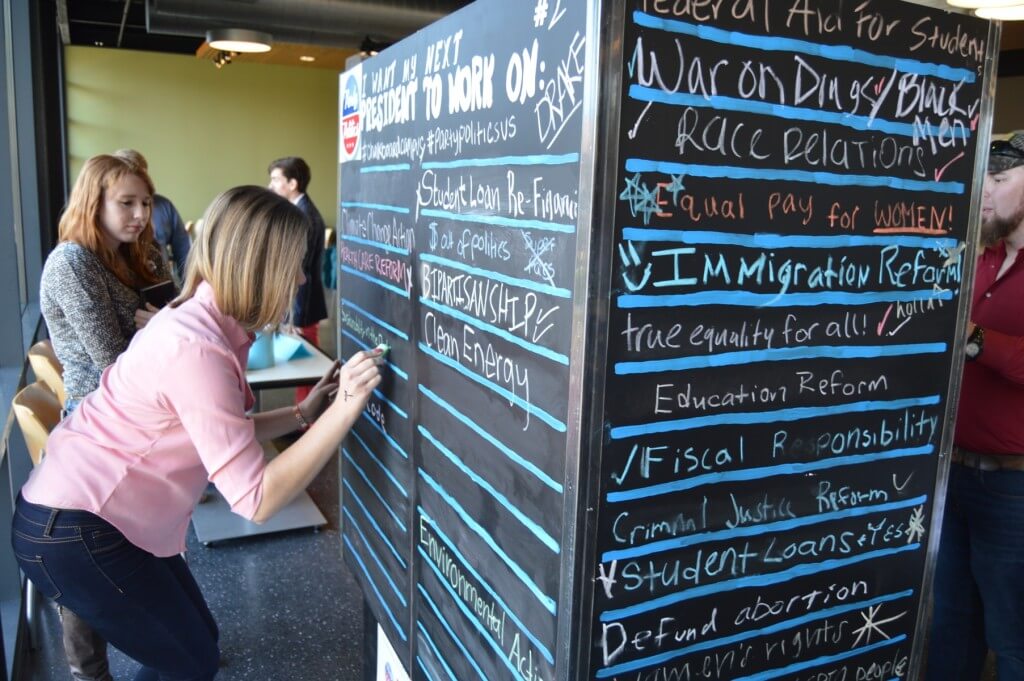 I WANT MY NEXT
PRESIDENT TO WORK ON:
#chalkboardcampus #partypoliticsVS
DRAKE
Climate Change Action
HEALTH CARE REFORM
Student Loan Re-Financi
$ out of politics
BIPARTISANSHIP
Clean Energy
Environmental Acti
Federal Aid For Student
War on Drugs / Black
Men
Race Relations
Equal pay for WOMEN!
Immigration Reform!
holla
true equality for all!
Education Reform
Fiscal Responsibility
Criminal Justice Reform
Student Loans YES
Defund abortion
Women's rights
people